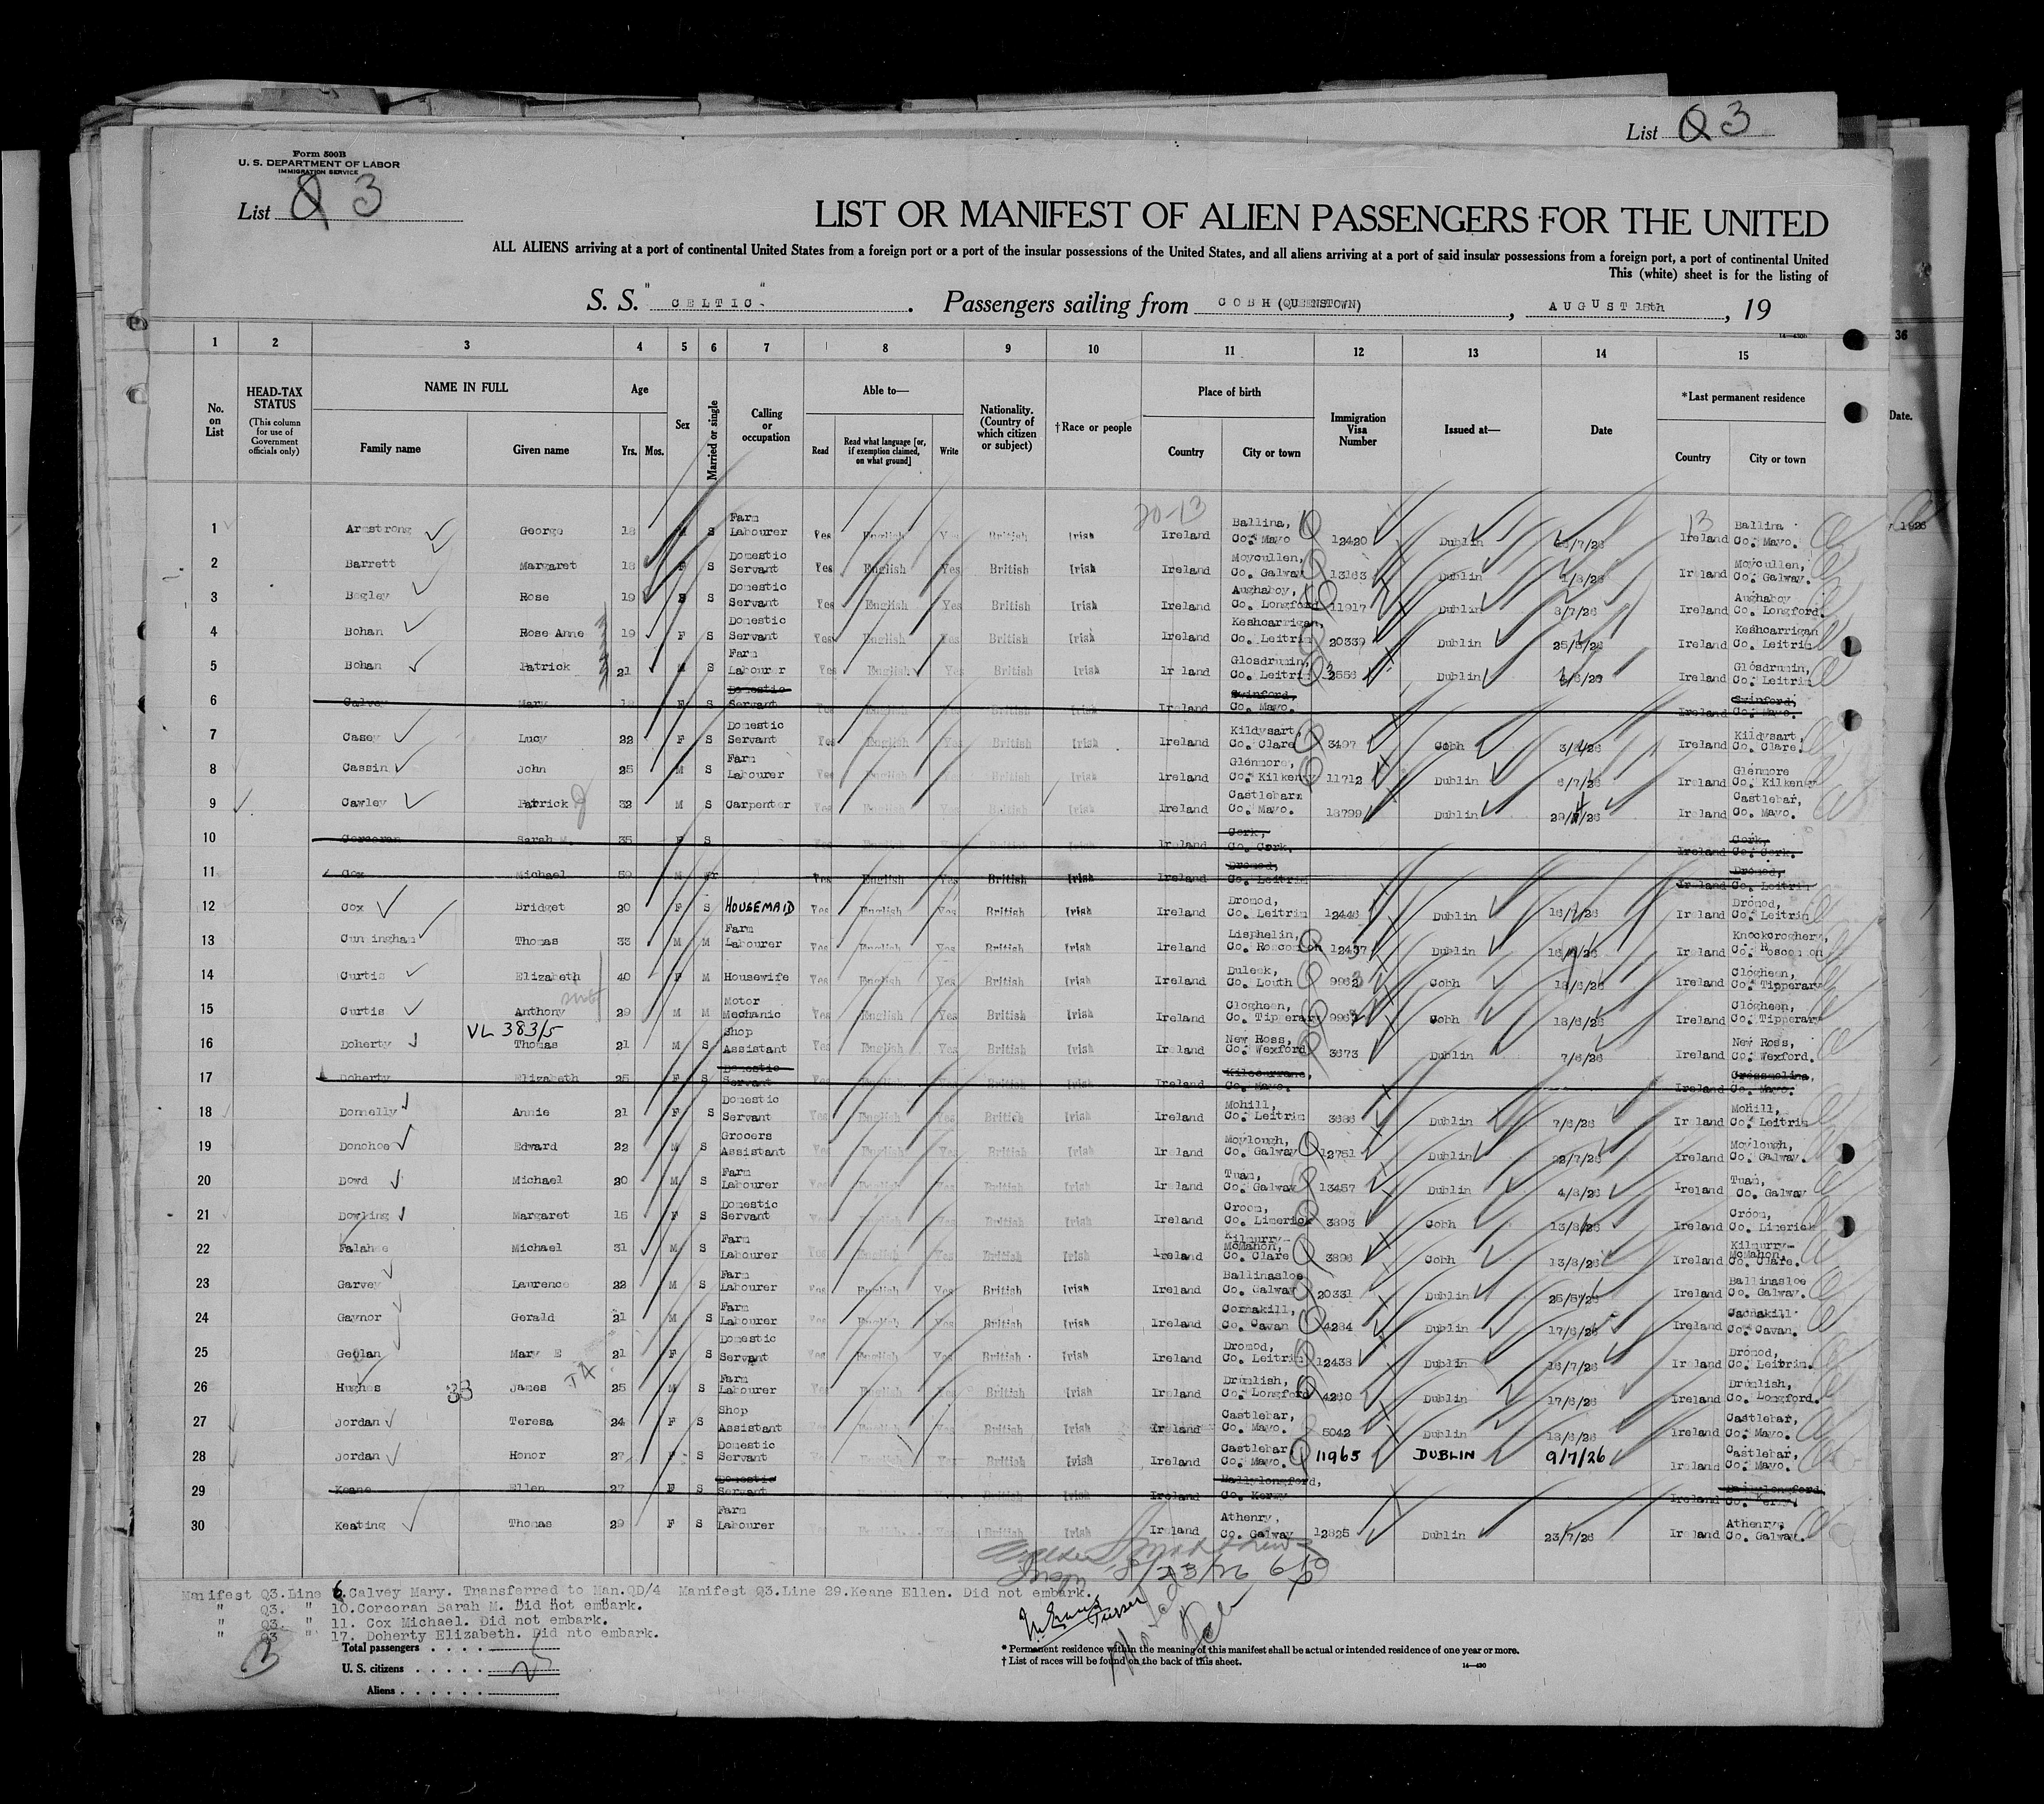 List Q 3
Form 500B
U. S. DEPARTMENT OF LABOR
IMMIGRATION SERVICE
List Q 3
LIST OR MANIFEST OF ALIEN PASSENGERS FOR THE UNITED
ALL ALIENS arriving at a port of continental United States from a foreign port or a port of the insular possessions of the United States, and all aliens arriving at a port of said insular possessions from a foreign port, a port of continental United
This (white) sheet is for the listing of
S. S. "CELTIC". Passengers sailing from COBH (QUEENSTOWN), AUGUST 15th, 19
14—430b
1 2 3 4 5 6 7 8 9 10 11 12 13 14 15 36
No. on List HEAD-TAX STATUS (This column for use of Government officials only) NAME IN FULL Family name Given name Age Yrs. Mos. Sex Married or single Calling or occupation Able to— Read Read what language [or, if exemption claimed, on what ground] Write Nationality. (Country of which citizen or subject) †Race or people Place of birth Country City or town Immigration Visa Number Issued at— Date *Last permanent residence Country City or town Date.
20-13 13
1 Armstrong George 18 M S Farm Labourer Yes English Yes British Irish Ireland Ballina, Co. Mayo 12420 Dublin /7/26 Ireland Ballina Co. Mayo. 1926
2 Barrett Margaret 18 F S Domestic Servant Yes English Yes British Irish Ireland Moycullen, Co. Galway 13163 Dublin /8/26 Ireland Moycullen, Co. Galway.
3 Begley Rose 19 F S Domestic Servant Yes English Yes British Irish Ireland Aughaboy, Co. Longford 11917 Dublin 8/7/26 Ireland Aughaboy Co. Longford.
4 Bohan Rose Anne 19 F S Domestic Servant Yes English Yes British Irish Ireland Keshcarrigan, Co. Leitrim 20339 Dublin 25/5/26 Ireland Keshcarrigan Co. Leitrim
5 Bohan Patrick 21 M S Farm Labourer Yes English Yes British Irish Ireland Glosdrumin, Co. Leitrim 2556 Dublin /6/26 Ireland Glosdrumin, Co. Leitrim
6 Calvey Mary 18 F S Domestic Servant Yes English Yes British Irish Ireland Swinford, Co. Mayo. Ireland Swinford, Co. Mayo.
7 Casey Lucy 22 F S Domestic Servant Yes English Yes British Irish Ireland Kildysart, Co. Clare 3497 Cobh 3/8/26 Ireland Kildysart, Co. Clare.
8 Cassin John 25 M S Farm Labourer Yes English Yes British Irish Ireland Glenmore, Co. Kilkenny 11712 Dublin 6/7/26 Ireland Glenmore Co. Kilkenny
9 Cawley Patrick 32 M S Carpenter Yes English Yes British Irish Ireland Castlebar Co. Mayo. 18799 Dublin 29/4/26 Ireland Castlebar, Co. Mayo.
10 Corcoran Sarah M. 35 F S Yes English Yes British Irish Ireland Cork, Co. Cork. Ireland Cork, Co. Cork.
11 Cox Michael 59 M Wr Yes English Yes British Irish Ireland Dromod, Co. Leitrim Ireland Dromod, Co. Leitrim
12 Cox Bridget 20 F S HOUSEMAID Yes English Yes British Irish Ireland Dromod, Co. Leitrim 12446 Dublin 16/7/26 Ireland Dromod, Co. Leitrim
13 Cunningham Thomas 33 M M Farm Labourer Yes English Yes British Irish Ireland Lisphelin, Co. Roscommon 12497 Dublin 16/7/26 Ireland Knockcroghery, Co. Roscommon
14 Curtis Elizabeth 40 F M Housewife Yes English Yes British Irish Ireland Duleek, Co. Louth 9962 Cobh 18/6/26 Ireland Clogheen, Co. Tipperary
15 Curtis Anthony 29 M M Motor Mechanic Yes English Yes British Irish Ireland Clogheen, Co. Tipperary 9963 Cobh 18/6/26 Ireland Clogheen, Co. Tipperary
VL 383/5
16 Doherty Thomas 21 M S Shop Assistant Yes English Yes British Irish Ireland New Ross, Co. Wexford 3673 Dublin 7/6/26 Ireland New Ross, Co. Wexford.
17 Doherty Elizabeth 25 F S Domestic Servant Yes English Yes British Irish Ireland Co. Mayo. Ireland Crossmolina, Co. Mayo.
18 Donnelly Annie 21 F S Domestic Servant Yes English Yes British Irish Ireland Mohill, Co. Leitrim 3686 Dublin 7/6/26 Ireland Mohill, Co. Leitrim
19 Donohoe Edward 22 M S Grocers Assistant Yes English Yes British Irish Ireland Moylough, Co. Galway 12751 Dublin 22/7/26 Ireland Moylough, Co. Galway.
20 Dowd Michael 20 M S Farm Labourer Yes English Yes British Irish Ireland Tuam, Co. Galway 13457 Dublin 4/8/26 Ireland Tuam, Co. Galway
21 Dowling Margaret 18 F S Domestic Servant Yes English Yes British Irish Ireland Croom, Co. Limerick 3893 Cobh 13/8/26 Ireland Croom, Co. Limerick
22 Falahee Michael 31 M S Farm Labourer Yes English Yes British Irish Ireland Kilmurry-McMahon, Co. Clare 3896 Cobh 13/8/26 Ireland Kilmurry-McMahon, Co. Clare.
23 Garvey Lawrence 22 M S Farm Labourer Yes English Yes British Irish Ireland Ballinasloe Co. Galway 20331 Dublin 25/5/26 Ireland Ballinasloe Co. Galway.
24 Gaynor Gerald 21 M S Farm Labourer Yes English Yes British Irish Ireland Cornakill, Co. Cavan 4284 Dublin 17/6/26 Ireland Co. Cavan.
25 Geelan Mary E 21 F S Domestic Servant Yes English Yes British Irish Ireland Dromod, Co. Leitrim 12438 Dublin 16/7/26 Ireland Dromod, Co. Leitrim.
26 Hughes 33 James 25 M S Farm Labourer Yes English Yes British Irish Ireland Drumlish, Co. Longford 4260 Dublin 17/6/26 Ireland Drumlish, Co. Longford.
27 Jordan Teresa 24 F S Shop Assistant Yes English Yes British Irish Ireland Castlebar, Co. Mayo. 5042 Dublin 18/6/26 Ireland Castlebar, Co. Mayo.
28 Jordan Honor 27 F S Domestic Servant British Irish Ireland Castlebar Co. Mayo. 11965 DUBLIN 9/7/26 Ireland Castlebar, Co. Mayo.
29 Keane Ellen 27 F S Domestic Servant British Irish Ireland Ballylongford, Co. Kerry Ireland Ballylongford, Co. Kerry
30 Keating Thomas 29 F S Farm Labourer Yes English Yes British Irish Ireland Athenry, Co. Galway 12825 Dublin 23/7/26 Ireland Athenry, Co. Galway.
8/23/26
Manifest Q3.Line 6.Calvey Mary. Transferred to Man.QD/4 Manifest Q3.Line 29.Keane Ellen. Did not embark.
" Q3. " 10.Corcoran Sarah M. Did not embark.
" Q3. " 11. Cox Michael. Did not embark.
" Q3 " 17. Doherty Elizabeth. Did nto embark.
Total passengers
U. S. citizens
25
Aliens
* Permanent residence within the meaning of this manifest shall be actual or intended residence of one year or more.
† List of races will be found on the back of this sheet.
14—430